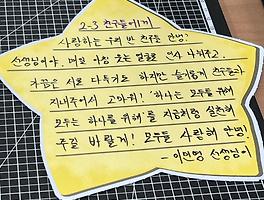 2-3 친구들에게
사랑하는 우리 반 친구들 안녕?
선생님이야. 매일 아침 웃는 얼굴로 인사 나눠주고,
가끔은 서로 다투기도 하지만 슬기롭게 친구들과
지내주어서 고마워! '하나는 모두를 위해
모두는 하나를 위해'를 지금처럼 실천해
주길 바랄게! 모두들 사랑해 안녕!
- 선생님이